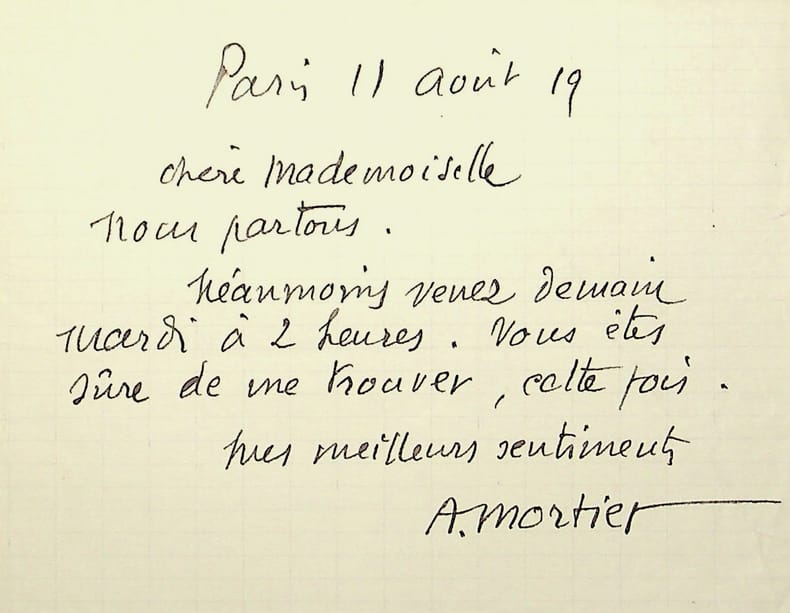 Paris 11 août 19
chère Mademoiselle
Nous partons.
Néanmoins venez demain
mardi à 2 heures. Vous êtes
sûre de me trouver, cette fois.
mes meilleurs sentiments
A. Mortier